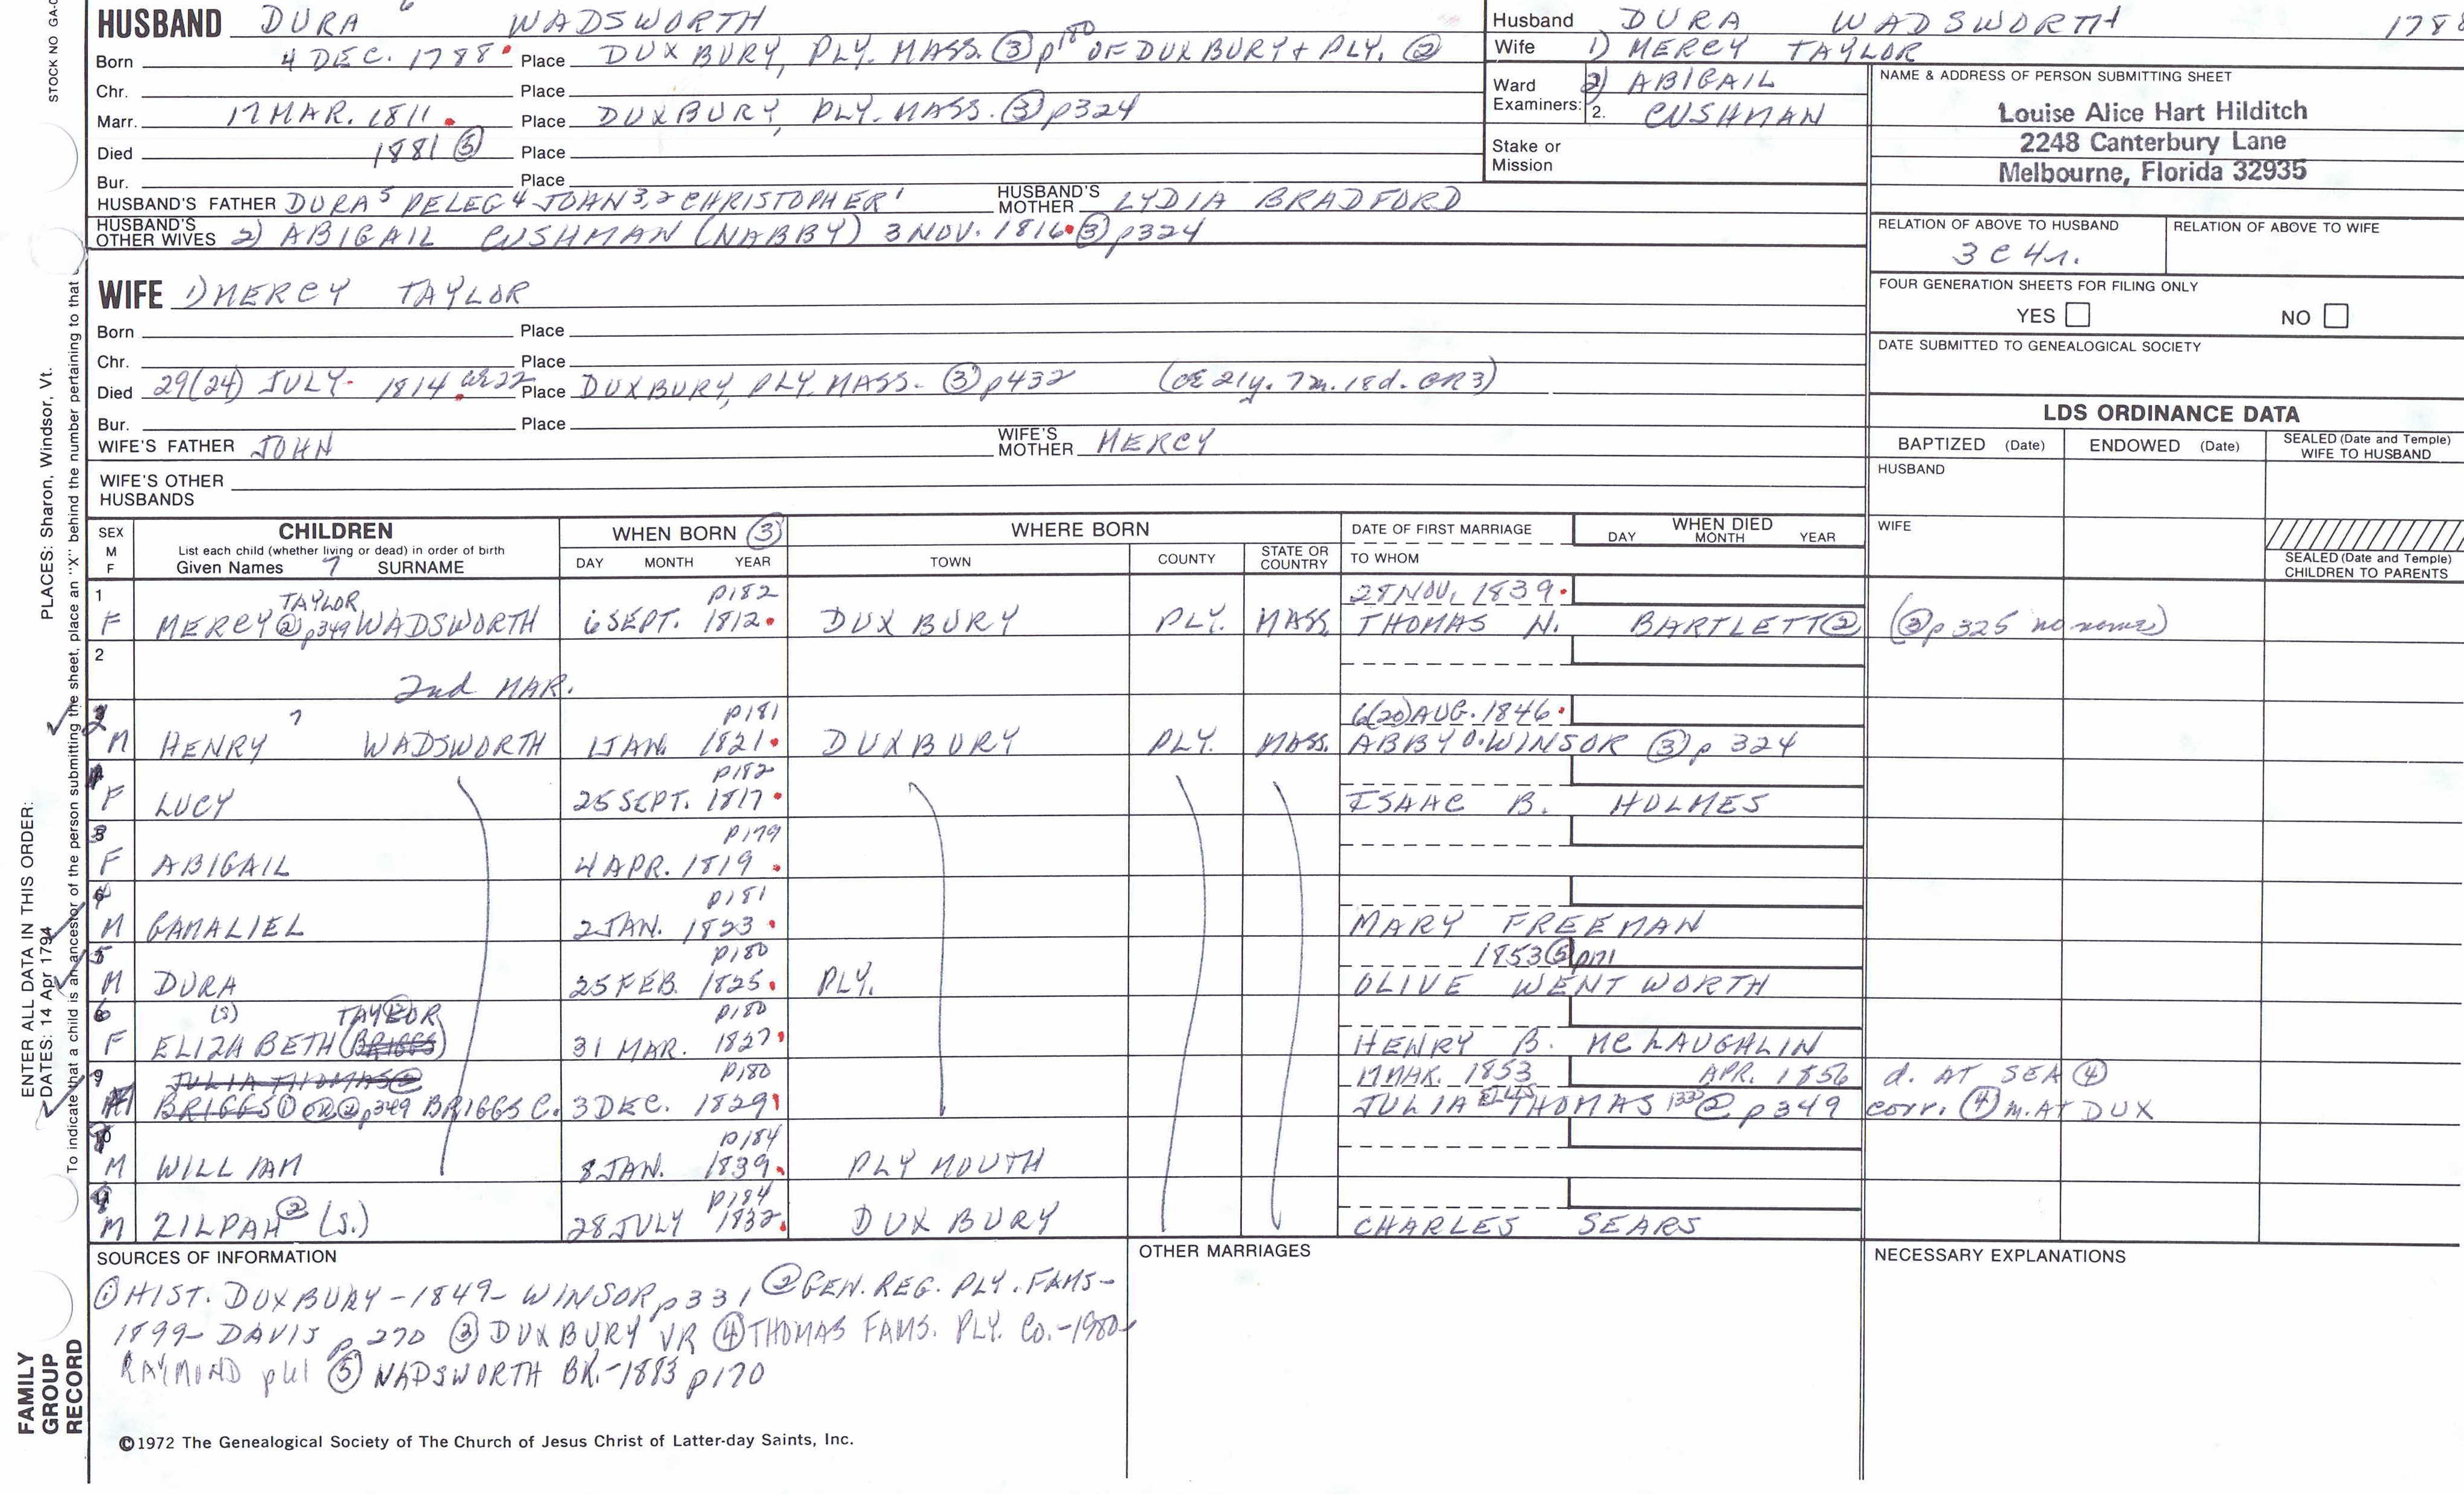 HUSBAND DURA 6 WADSWORTH
Born 4 DEC. 1788 Place DUXBURY, PLY. MASS. ③ p180 OF DUXBURY + PLY. ②
Chr. Place
Marr. 17 MAR. 1811. Place DUXBURY, PLY. MASS. ③ p324
Died 1881 ⑤ Place
Bur. Place
HUSBAND'S FATHER DURA 5 PELEG 4 JOHN 3,2 CHRISTOPHER 1 HUSBAND'S MOTHER LYDIA BRADFORD
HUSBAND'S OTHER WIVES 2) ABIGAIL CUSHMAN (NABBY) 3 NOV. 1816 ③ p324
Husband DURA WADSWORTH 1788
Wife 1) MERCY TAYLOR
Ward Examiners: 2) ABIGAIL
2. CUSHMAN
Stake or Mission
NAME & ADDRESS OF PERSON SUBMITTING SHEET
Louise Alice Hart Hilditch
2248 Canterbury Lane
Melbourne, Florida 32935
RELATION OF ABOVE TO HUSBAND RELATION OF ABOVE TO WIFE
3 C 4 r.
FOUR GENERATION SHEETS FOR FILING ONLY
YES NO
DATE SUBMITTED TO GENEALOGICAL SOCIETY
WIFE 1) MERCY TAYLOR
Born Place
Chr. Place
Died 29(24) JULY 1814. ae 22 Place DUXBURY, PLY. MASS. ③ p432 (ae 21y. 7m. 18d. GR3)
Bur. Place
WIFE'S FATHER JOHN WIFE'S MOTHER MERCY
WIFE'S OTHER HUSBANDS
LDS ORDINANCE DATA
BAPTIZED (Date) ENDOWED (Date) SEALED (Date and Temple) WIFE TO HUSBAND
HUSBAND
WIFE
SEALED (Date and Temple) CHILDREN TO PARENTS
SEX M F CHILDREN WHEN BORN ③ WHERE BORN DATE OF FIRST MARRIAGE WHEN DIED
List each child (whether living or dead) in order of birth
Given Names 7 SURNAME DAY MONTH YEAR TOWN COUNTY STATE OR COUNTRY TO WHOM DAY MONTH YEAR
1 TAYLOR p182 28 NOV. 1839.
F MERCY ② p349 WADSWORTH 6 SEPT. 1812. DUXBURY PLY. MASS. THOMAS N. BARTLETT ② (③ p325 no names)
2
2nd MAR.
2 7 p181 6(20) AUG. 1846.
M HENRY WADSWORTH 1 JAN. 1821. DUXBURY PLY. MASS. ABBY O. WINSOR ③ p 324
p182
F LUCY 25 SEPT. 1817. ISAAC B. HOLMES
3 p179
F ABIGAIL 4 APR. 1819.
p181
M GAMALIEL 2 JAN. 1823. MARY FREEMAN
5 p180 1853 ⑤ p171
M DURA 25 FEB. 1825. PLY. OLIVE WENTWORTH
6 (S) TAYLOR p180
F ELIZABETH (BRIGGS) 31 MAR. 1827 HENRY B. McLAUGHLIN
9 JULIA THOMAS ② p180 17 MAR. 1853 APR. 1856 d. AT SEA ④
BRIGGS ① OR ② p349 BRIGGS C. 3 DEC. 1829 JULIA ELLIS THOMAS ② p349 corr. ④ m. AT DUX
10 p184
M WILLIAM 8 JAN. 1839. PLYMOUTH
p184
M ZILPAH ② (S.) 28 JULY 1832. DUXBURY CHARLES SEARS
SOURCES OF INFORMATION OTHER MARRIAGES NECESSARY EXPLANATIONS
① HIST. DUXBURY - 1849 - WINSOR p331 ② GEN. REG. PLY. FAMS -
1899 - DAVIS p 270 ③ DUXBURY VR ④ THOMAS FAMS. PLY. Co. - 1980 -
RAYMOND ⑤ WADSWORTH BK. - 1883 p170
©1972 The Genealogical Society of The Church of Jesus Christ of Latter-day Saints, Inc.
STOCK NO GA-
ENTER ALL DATA IN THIS ORDER:
PLACES: Sharon, Windsor, Vt.
DATES: 14 Apr 1794
To indicate that a child is an ancestor of the person submitting the sheet, place an "X" behind the number pertaining to that
FAMILY
GROUP
RECORD